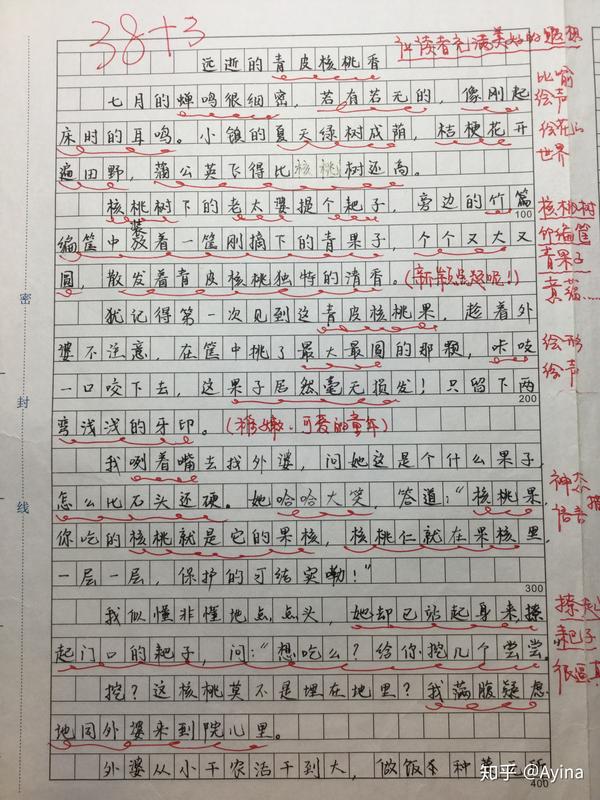 38+3
让读者充满美好的遐想
远逝的青皮核桃香
七月的蝉鸣很细密，若有若无的，像刚起
比喻
绘声
床时的耳鸣。小镇的夏天绿树成荫，桔梗花开
绘花的
世界
遍田野，蒲公英飞得比核桃树还高。
核桃树下的老太婆提个耙子，旁边的竹篇
100
核桃树
编筐中装着一筐刚摘下的青果子，个个又大又
竹编筐
青果子
圆，散发着青皮核桃独特的清香。(新颖点题呢!)
真
犹记得第一次见到这青皮核桃果，趁着外
婆不注意，在筐中挑了最大最圆的那颗，咔吱
绘形
绘声
一口咬下去，这果子居然毫无损发！只留下两
200
弯浅浅的牙印。(稚嫩、可爱的童年)
我咧着嘴去找外婆，问她这是个什么果子，
怎么比石头还硬。她哈哈大笑，答道："核桃果，
神态
语言描
你吃的核桃就是它的果核，核桃仁就在果核里，
一层一层，保护的可结实嘞！"
300
我似懂非懂地点点头，她却已站起身来撩
撩起
起门口的耙子，问："想吃么？给你挖几个尝尝
耙子
很逼真
挖？这核桃莫不是埋在地里？我满腹疑虑
地同外婆来到院儿里。
外婆从小干农活干到大，做饭
种
400
密
封
线
知乎 @Ayina